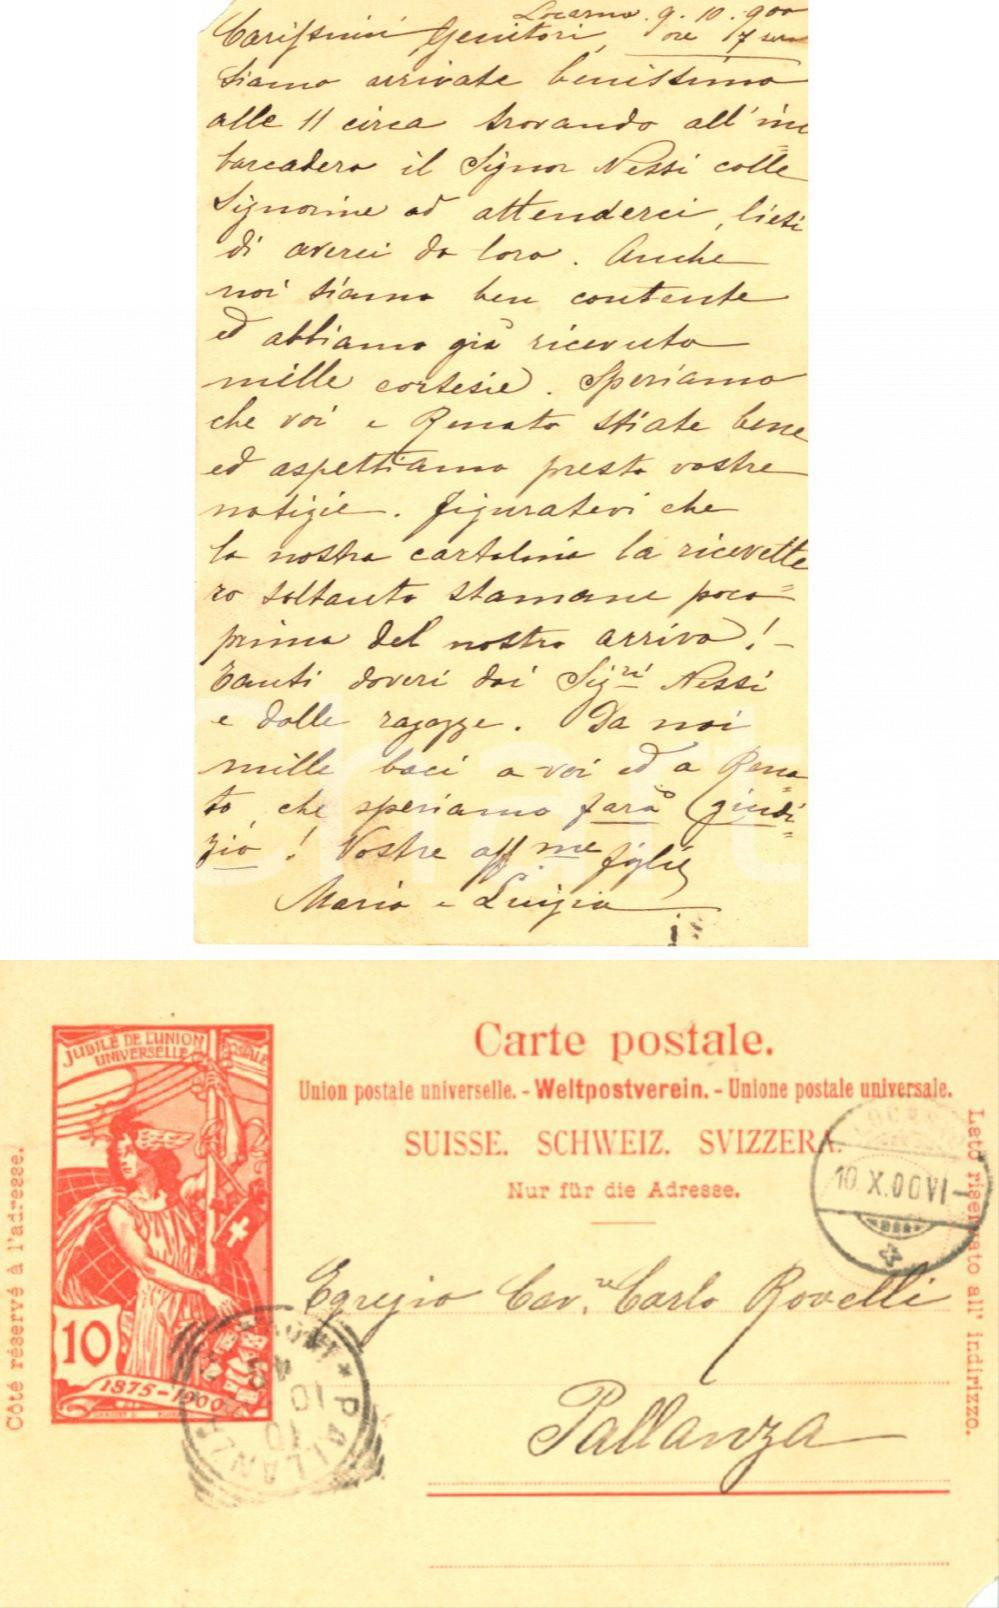 Locarno. 9. 10. 900
Carissimi Genitori, ore 17 sera
Siamo arrivate benissimo
alle 11 circa trovando all'im
barcadero il Signor Nessi colle
Signorine ad attenderci, lieti
di averci da loro. Anche
noi siamo ben contente
ed abbiamo già ricevuto
mille cortesie. Speriamo
che voi e Renato stiate bene
ed aspettiamo presto vostre
notizie. Figuratevi che
la nostra cartolina la ricevette
ro soltanto stamane poco
prima del nostro arrivo! -
Tanti doveri dai Sigri Nessi
e dalle ragazze. Da noi
mille baci a voi ed a Rena
to, che speriamo farà giudi
zio! Vostre affme figlie
Maria e Luigia
JUBILÉ DE L'UNION POSTALE
UNIVERSELLE
10
1875-1900
Côté réservé à l'adresse.
Carte postale.
Union postale universelle. - Weltpostverein. - Unione postale universale.
SUISSE. SCHWEIZ. SVIZZERA.
Nur für die Adresse.
Lato riservato all' indirizzo.
LOCARNO
10.X.00 VI-
Egregio Cav.re Carlo Rovelli
Pallanza
PALLANZA
10
10